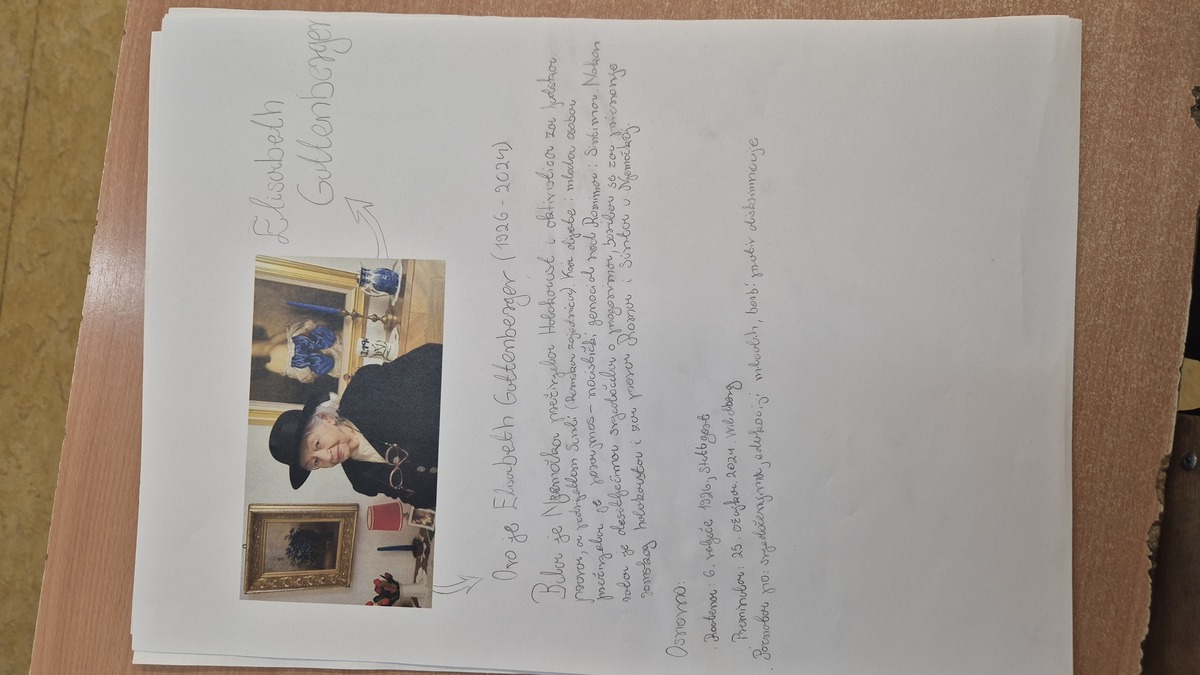 Elisabeth
Guttenberger
Ovo je Elisabeth Guttenberger (1926 - 2024)
Bila je Njemačka preživjela Holokaust i aktivistica za ljudska
prava, a podrijetlom Sinti (Romska zajednica). Kao dijete i mlada osoba
preživjela je porajmos - nacistički genocid nad Romima i Sintima. Nakon
rata je desetljećima svjedočila o progonima, borila se za priznanje
romskog holokausta i za prava Roma i Sinta u Njemačkoj.
Osnovno:
· Rođena: 6. veljače 1926, Stuttgart
Preminula: 25. ožujka 2024.
· Poznata po: svjedočenjima, edukaciji mladih, borbi protiv diskriminacije